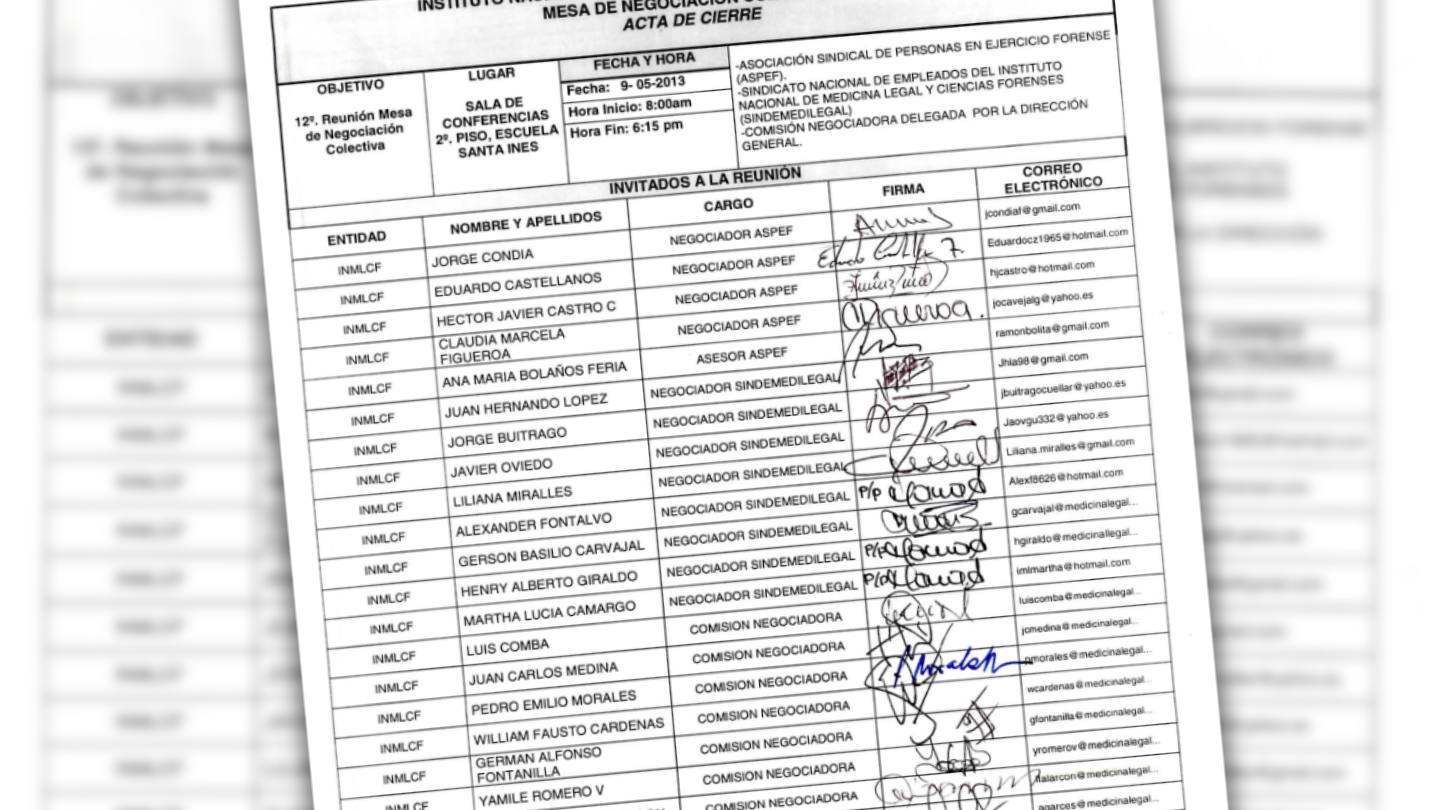 MESA DE NEGOCIACIÓN
ACTA DE CIERRE
OBJETIVO
12º. Reunión Mesa
de Negociación
Colectiva
LUGAR
SALA DE
CONFERENCIAS
2º. PISO, ESCUELA
SANTA INES
FECHA Y HORA
Fecha: 9- 05-2013
Hora Inicio: 8:00am
Hora Fin: 6:15 pm
-ASOCIACIÓN SINDICAL DE PERSONAS EN EJERCICIO FORENSE
(ASPEF).
-SINDICATO NACIONAL DE EMPLEADOS DEL INSTITUTO
NACIONAL DE MEDICINA LEGAL Y CIENCIAS FORENSES
(SINDEMEDILEGAL)
-COMISIÓN NEGOCIADORA DELEGADA POR LA DIRECCIÓN
GENERAL.
INVITADOS A LA REUNIÓN
ENTIDAD NOMBRE Y APELLIDOS CARGO FIRMA CORREO
ELECTRÓNICO
INMLCF JORGE CONDIA NEGOCIADOR ASPEF jcondiaf@gmail.com
INMLCF EDUARDO CASTELLANOS NEGOCIADOR ASPEF Eduardocz1965@hotmail.com
INMLCF HECTOR JAVIER CASTRO C NEGOCIADOR ASPEF hjcastro@hotmail.com
INMLCF CLAUDIA MARCELA
FIGUEROA NEGOCIADOR ASPEF jocavejalg@yahoo.es
INMLCF ANA MARIA BOLAÑOS FERIA ASESOR ASPEF ramonbolita@gmail.com
INMLCF JUAN HERNANDO LOPEZ NEGOCIADOR SINDEMEDILEGAL Jhla98@gmail.com
INMLCF JORGE BUITRAGO NEGOCIADOR SINDEMEDILEGAL jbuitragocuellar@yahoo.es
INMLCF JAVIER OVIEDO NEGOCIADOR SINDEMEDILEGAL Jaovgu332@yahoo.es
INMLCF LILIANA MIRALLES NEGOCIADOR SINDEMEDILEGAL Liliana.miralles@gmail.com
INMLCF ALEXANDER FONTALVO NEGOCIADOR SINDEMEDILEGAL P/p Alexf8626@hotmail.com
INMLCF GERSON BASILIO CARVAJAL NEGOCIADOR SINDEMEDILEGAL gcarvajal@medicinalegal...
INMLCF HENRY ALBERTO GIRALDO NEGOCIADOR SINDEMEDILEGAL P/p hgiraldo@medicinallegal...
INMLCF MARTHA LUCIA CAMARGO NEGOCIADOR SINDEMEDILEGAL P/p imlmartha@hotmail.com
INMLCF LUIS COMBA COMISION NEGOCIADORA luiscomba@medicinalegal...
INMLCF JUAN CARLOS MEDINA COMISION NEGOCIADORA jcmedina@medicinalegal...
INMLCF PEDRO EMILIO MORALES COMISION NEGOCIADORA pmorales@medicinalegal...
INMLCF WILLIAM FAUSTO CARDENAS COMISION NEGOCIADORA wcardenas@medicinalegal...
INMLCF GERMAN ALFONSO
FONTANILLA COMISION NEGOCIADORA gfontanilla@medicinalegal...
INMLCF YAMILE ROMERO V COMISION NEGOCIADORA yromerov@medicinalegal...
COMISION NEGOCIADORA